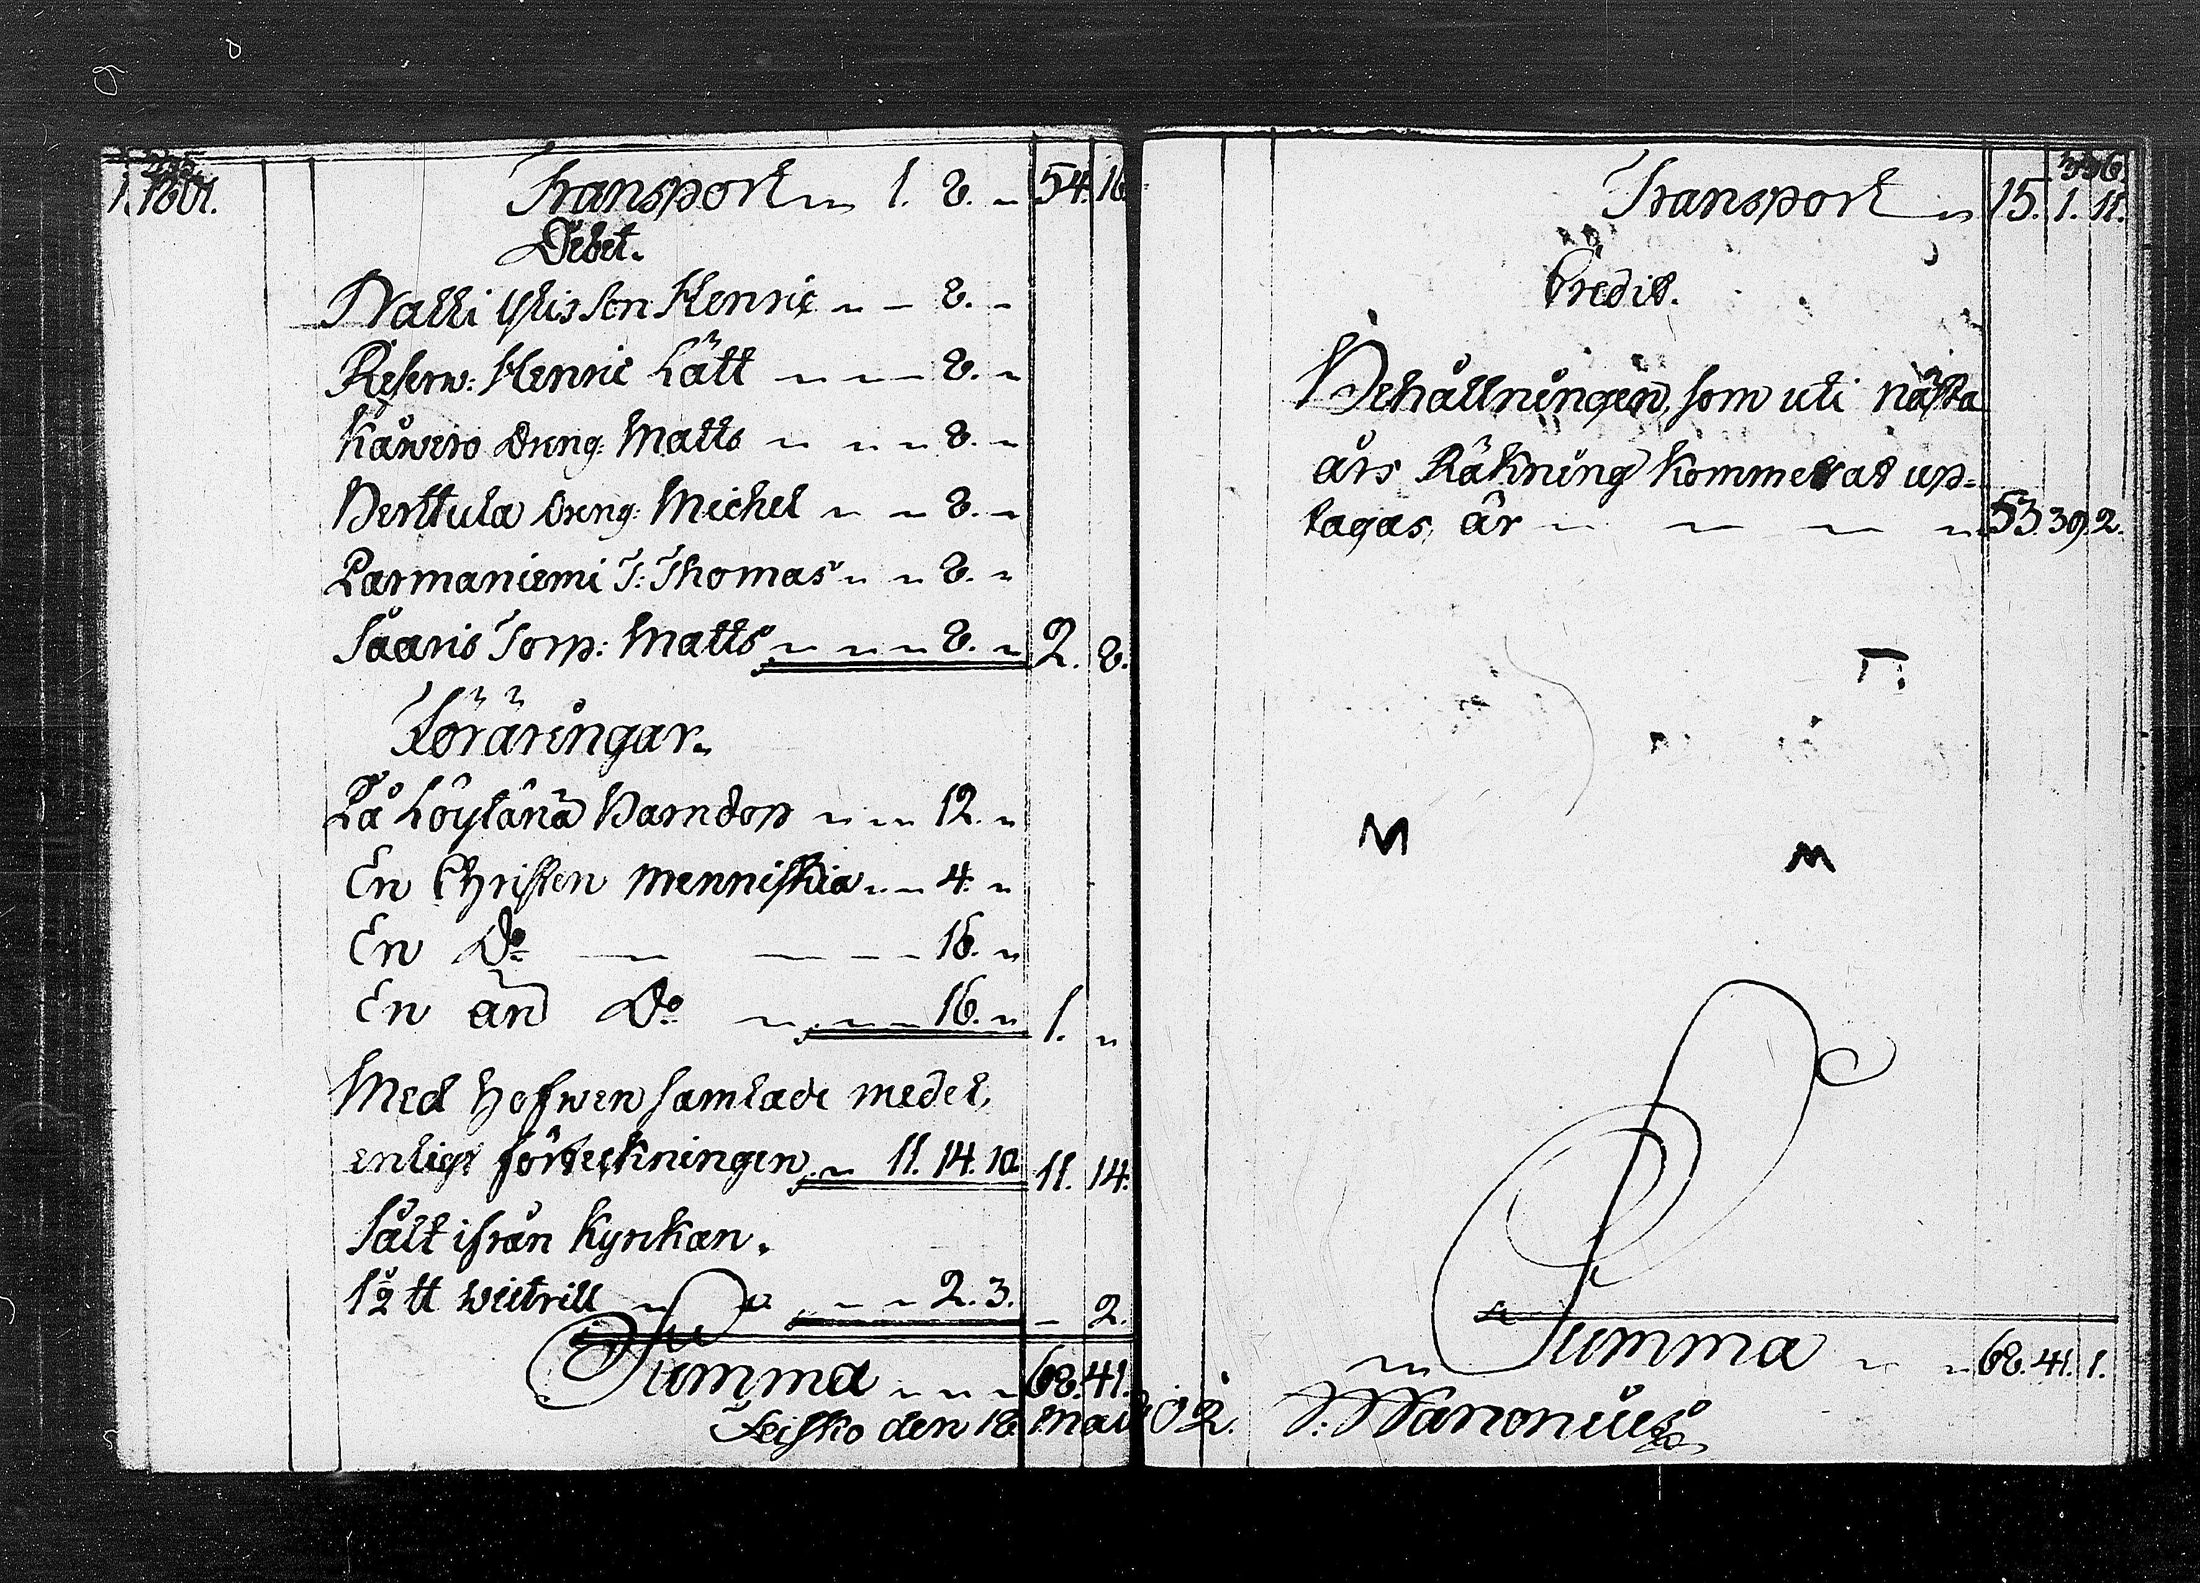 335.
1801. Transport „ 1. 8. „ 54. 16
Debet.
Nalli Ylis Son Henric „ — 8. „
Reserv: Henric Lätt „ „ — 8. „
Kåwero Dreng: Matts „ „ „ 8. „
Perttula Dreng: Michel „ „ 8. „
Parmaniemi T: Thomas „ „ 8. „
Saaris Torp: Matts „ „ „ 8. „ 2. 8.
Föräringar.
På Löytänä Barndop „ „ 12. „
En Christen menniskia „ „ 4. „
En Do — — — — 16. „
En än Do „ „ „ 16. „ 1. „
Med Hofwen samlade medel,
enligt förteckningen „ 11. 14. 10 11. 14.
Sålt ifrån Kyrkan.
1½ tt wictrill „ „ „ 2. 3. — 2.
Summa „ „ „ 68. 41.
Teisko den 18 Maii 802.
336.
Transport „ 15. 1. 11.
Credit.
Behållningen, som uti nästa
års Räkning kommer at up-
tagas, är „ — — „ 53. 39. 2.
Summa „ „ 68. 41. 1.